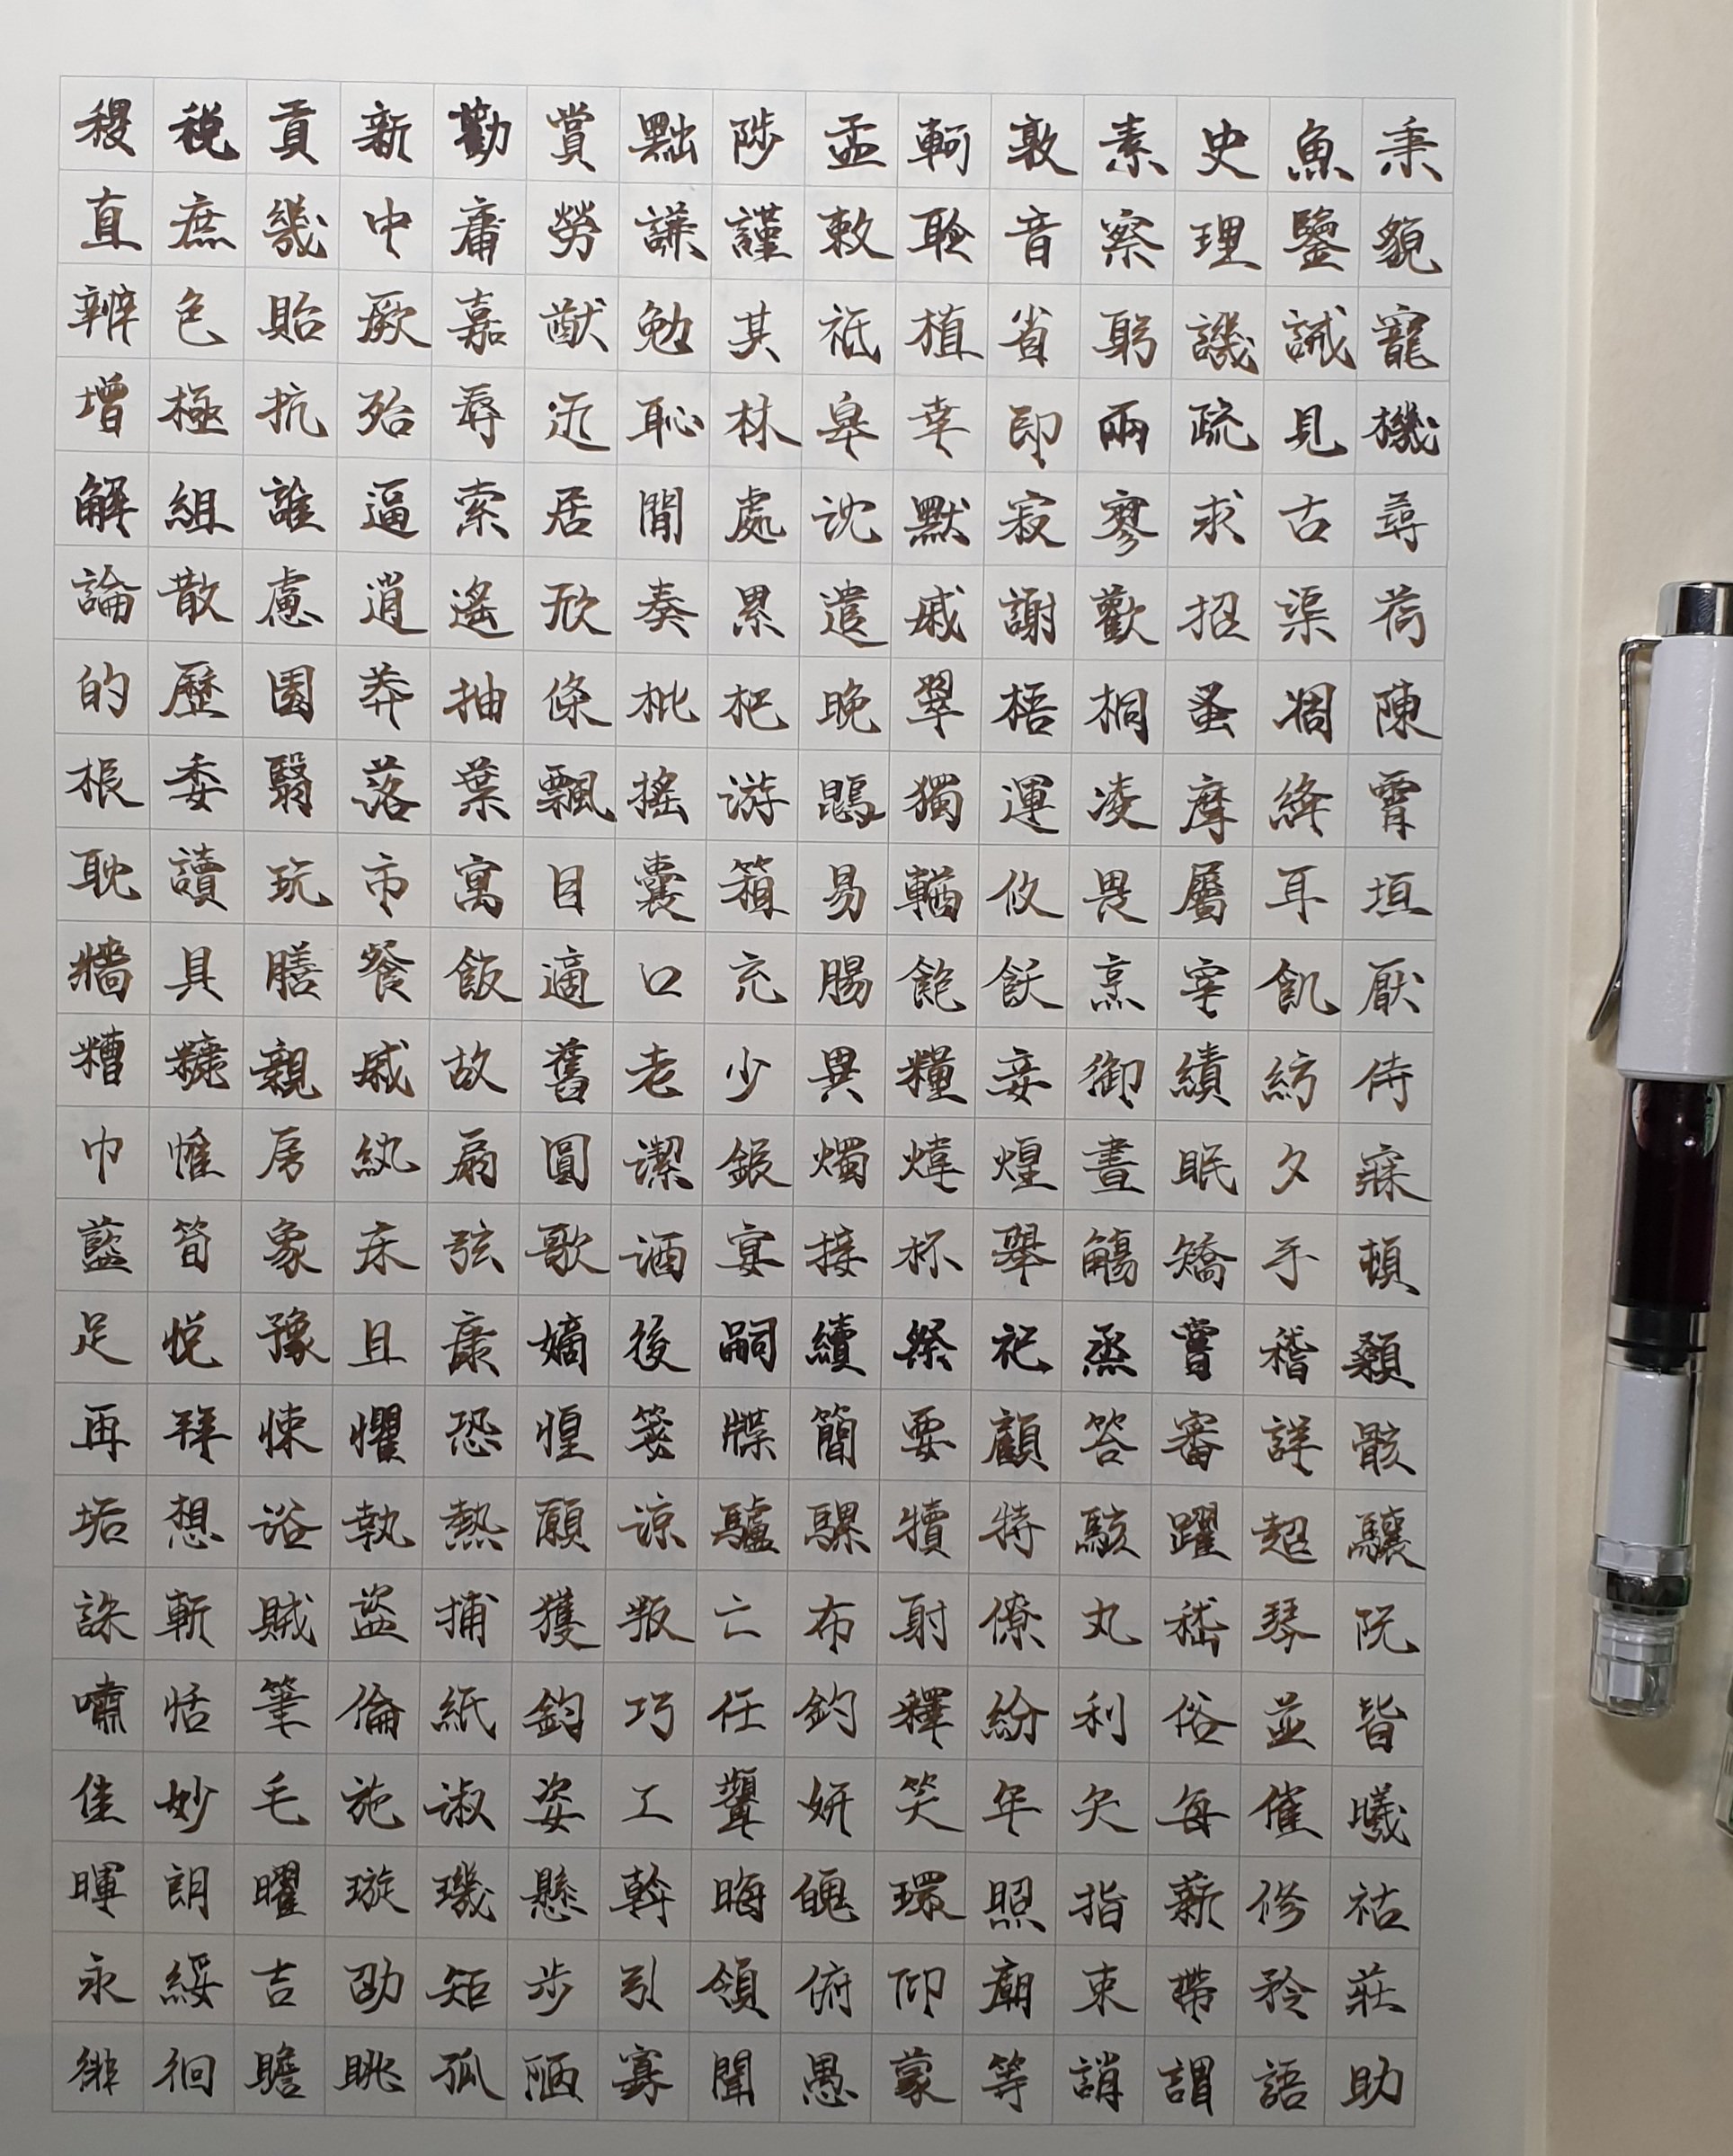 稷稅貢新勸賞黜陟孟軻敦素史魚秉
直庶幾中庸勞謙謹敕聆音察理鑒貌
辨色貽厥嘉猷勉其祗植省躬譏誡寵
增極抗殆辱近恥林皋幸即兩疏見機
解組誰逼索居閒處沈默寂寥求古尋
論散慮逍遙欣奏累遣戚謝歡招渠荷
的歷園莽抽條枇杷晚翠梧桐蚤凋陳
根委翳落葉飄搖游鵾獨運凌摩絳霄
耽讀玩市寓目囊箱易輶攸畏屬耳垣
牆具膳餐飯適口充腸飽飫烹宰飢厭
糟糠親戚故舊老少異糧妾御績紡侍
巾帷房紈扇圓潔銀燭煒煌晝眠夕寐
藍筍象床弦歌酒宴接杯舉觴矯手頓
足悅豫且康嫡後嗣續祭祀烝嘗稽顙
再拜悚懼恐惶箋牒簡要顧答審詳骸
垢想浴執熱願涼驢騾犢特駭躍超驤
誅斬賊盜捕獲叛亡布射僚丸嵇琴阮
嘯恬筆倫紙鈞巧任釣釋紛利俗並皆
佳妙毛施淑姿工顰妍笑年矢每催曦
暉朗曜璇璣懸斡晦魄環照指薪修祜
永綏吉劭矩步引領俯仰廟束帶矜莊
徘徊瞻眺孤陋寡聞愚蒙等誚謂語助